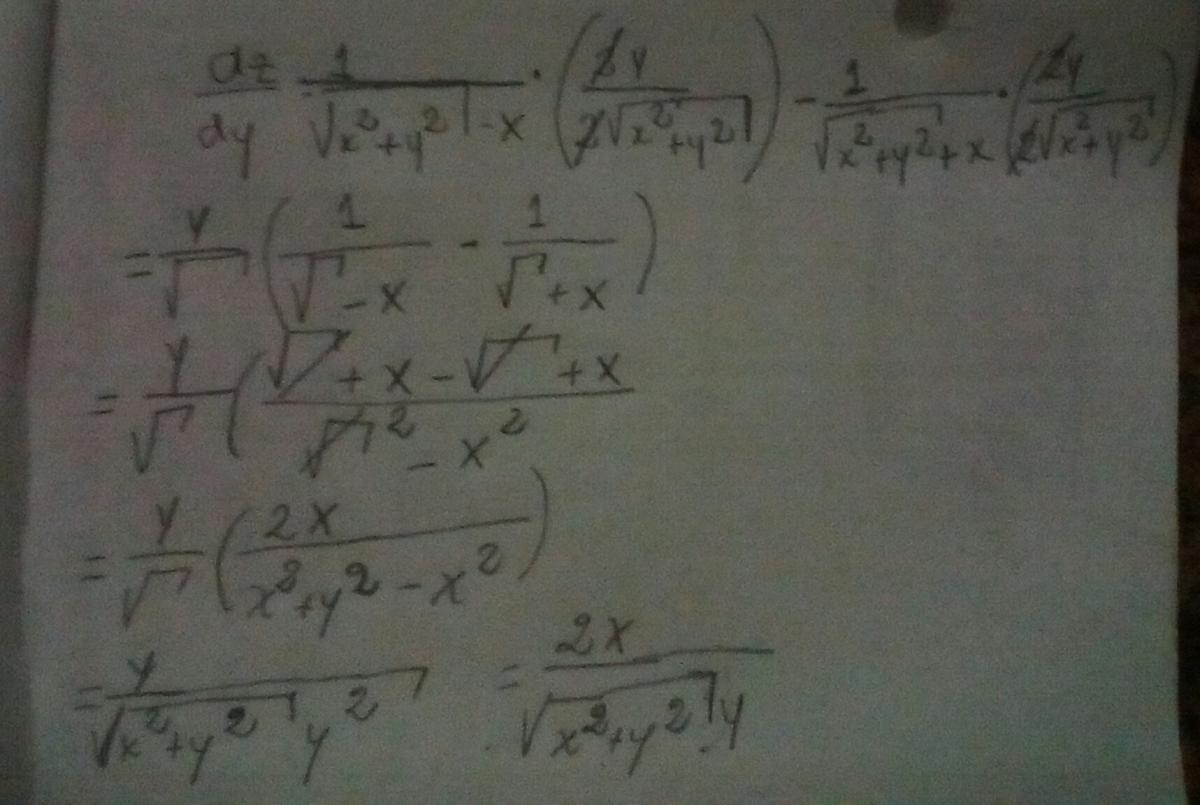 dz/dy = 1/(√(x²+y²) - x) · (2y/(2√(x²+y²))) - 1/(√(x²+y²) + x) · (2y/(2√(x²+y²)))
= y/√ (1/(√ - x) - 1/(√ + x))
= y/√ ((√ + x - √ + x)/(√² - x²)
= y/√ (2x/(x²+y² - x²))
= y/(√(x²+y²) y²) = 2x/(√(x²+y²) . y)